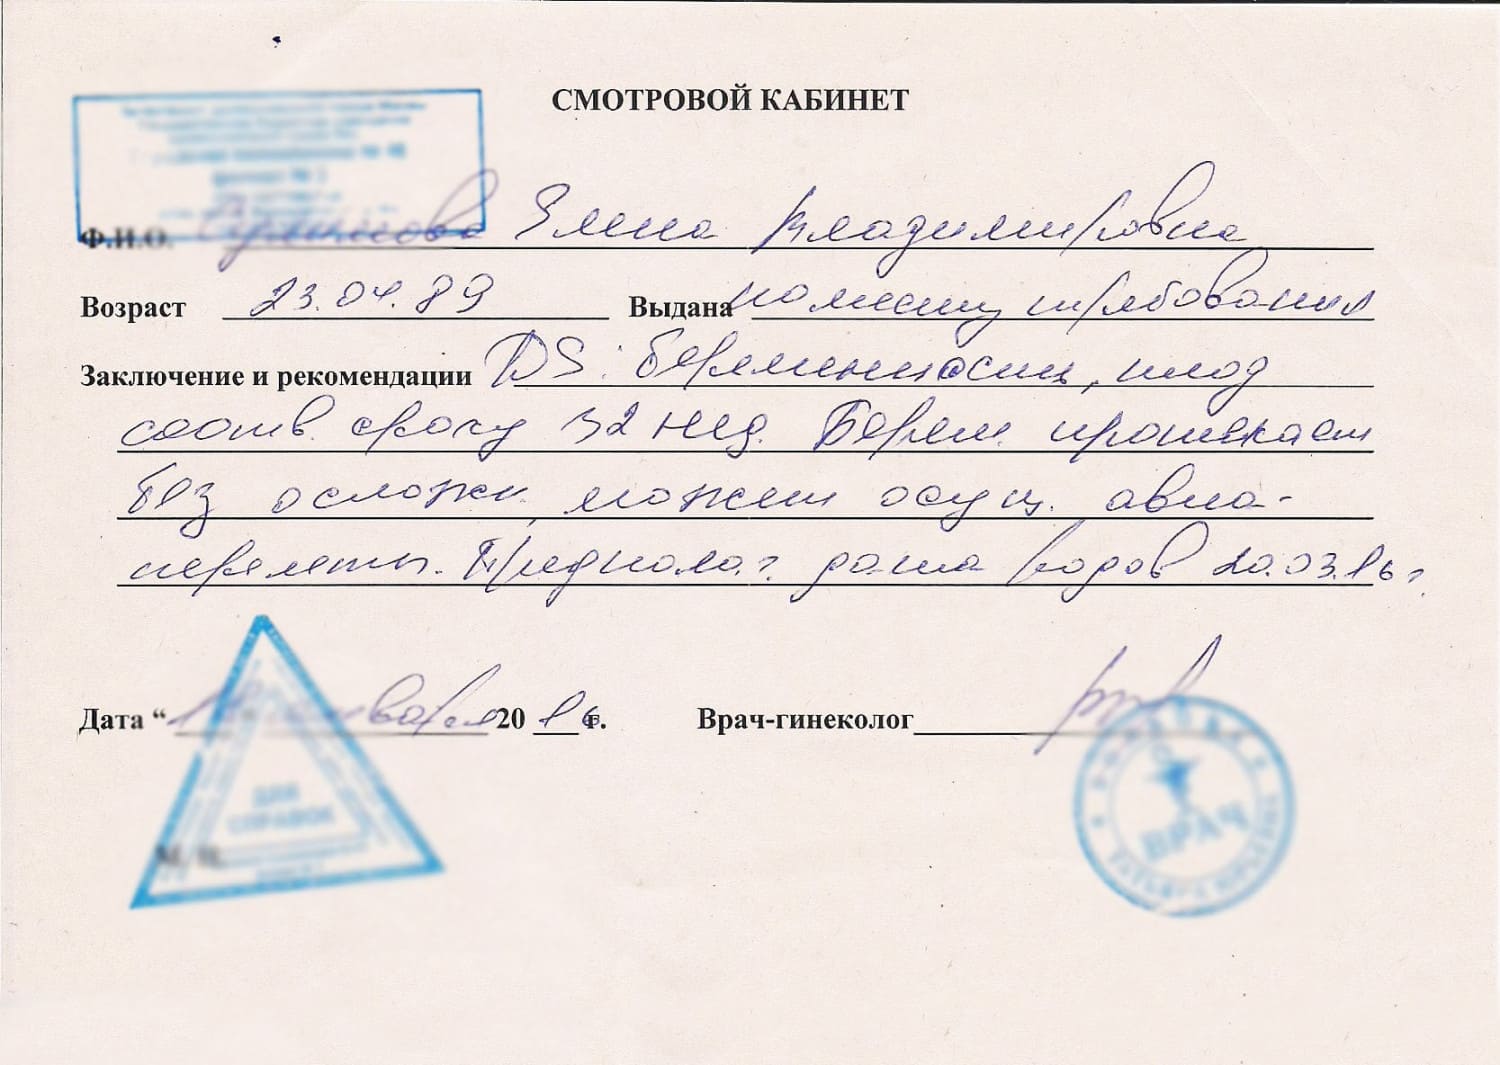 СМОТРОВОЙ КАБИНЕТ
Ф.И.О. Елена Владимировна
Возраст 23.04.89 Выдана по месту требования
Заключение и рекомендации DS: Беременность, плод
соотв. сроку 32 нед. Берем. протекает
без осложн., может осущ. авиа-
перелеты. Предполаг. дата родов 20.03.16 г
Дата “ января 20 16 г. Врач-гинеколог
ДЛЯ
СПРАВОК
М.П.
ВРАЧ
ТАТЬЯНА ЮРЬЕВНА